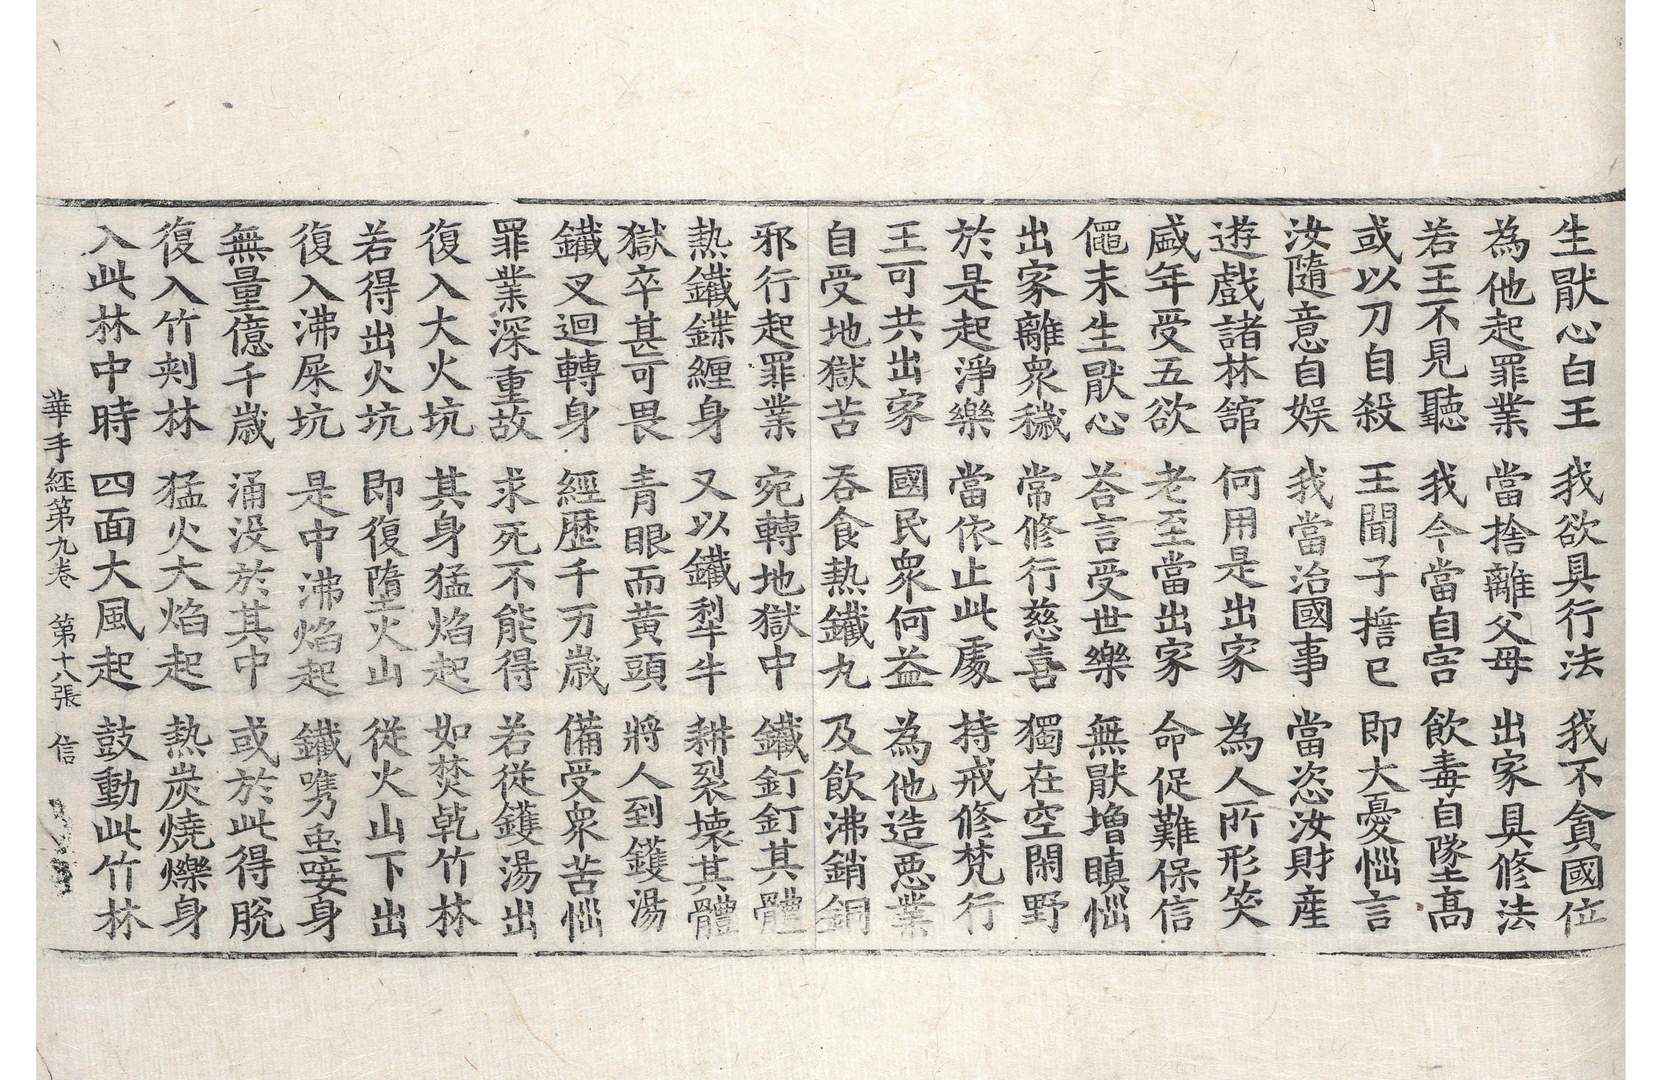 生厭心白王 我欲具行法 我不貪國位
為他起罪業 當捨離父母 出家具修法
若王不見聽 我今當自害 飲毒自墜高
或以刀自殺 王聞子擔已 即大憂惱言
汝隨意自娛 我當治國事 當恣汝財產
遊戲諸林舘 何用是出家 為人所形笑
盛年受五欲 老至當出家 命促難保信
僶未生厭心 荅言受世樂 無厭增瞋惱
出家離衆穢 常修行慈喜 獨在空閑野
於是起淨樂 當依止此處 持戒修梵行
王可共出家 國民衆何益 為他造惡業
自受地獄苦 吞食熱鐵丸 及飲沸銷銅
邪行起罪業 宛轉地獄中 鐵釘釘其體
熱鐵鍱纒身 又以鐵犁牛 耕裂壞其體
獄卒甚可畏 青眼而黃頭 將人到鑊湯
鐵叉迴轉身 經歷千万歲 備受衆苦惱
罪業深重故 求死不能得 若從鑊湯出
復入大火坑 其身猛焰起 如焚乾竹林
若得出火坑 即復墮火山 從火山下出
復入沸屎坑 是中沸焰起 鐵嘴虫唼身
無量億千歲 涌没於其中 或於此得脫
復入竹刺林 猛火大焰起 熱炭燒爍身
入此林中時 四面大風起 鼓動此竹林
華手經第九卷 第十八張 信